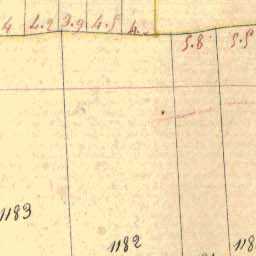 4 4.2 3.9 4.5 4.
5.8 5.5
1183
1182
118